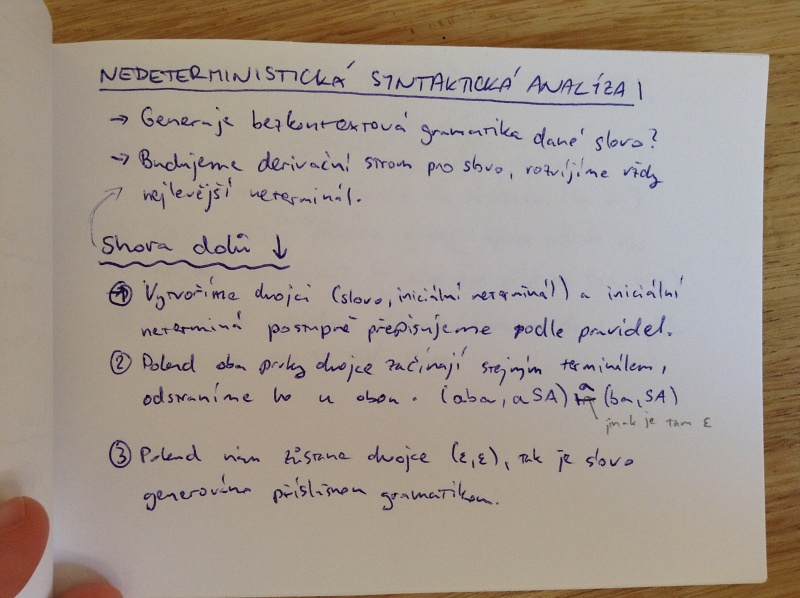 NEDETERMINISTICKÁ SYNTAKTICKÁ ANALÍZA I
→ Generuje bezkontextová gramatika dané slovo?
→ Budujeme derivační strom pro slovo, rozvíjíme vždy
nejlevější neterminál.
Shora dolů ↓
① Vytvoříme dvojci (slovo, iniciální neterminál) a iniciální
neterminá postupně přepisujeme podle pravidel.
② Pokud oba prvky dvojce začínají stejným terminálem,
odstraníme ho u obou. (aba, aSA) ⊢ᵃ (ba, SA)
jinak je tam ε
③ Pokud nám zůstane dvojce (ε,ε), tak je slovo
generováno příslišnou gramatikou.